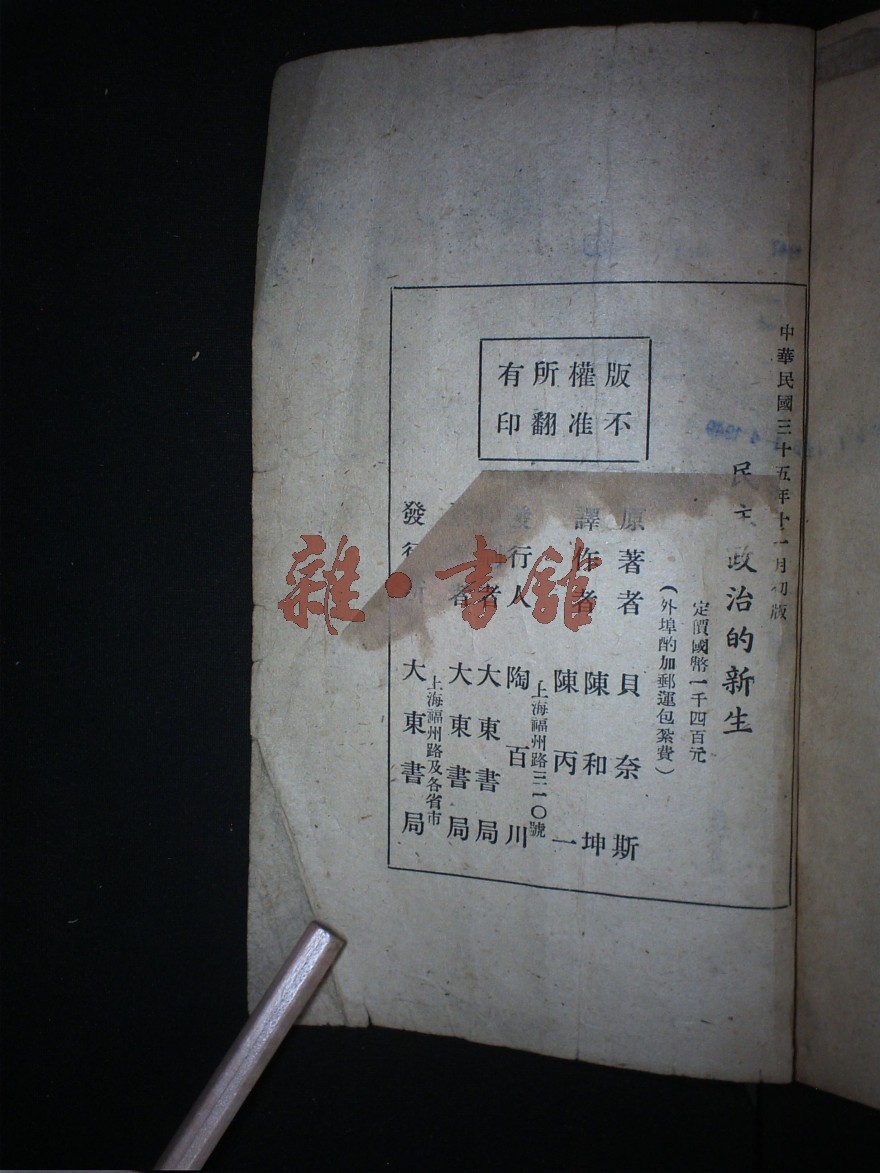 中華民國三十五年十一月初版
民主政治的新生
定價國幣一千四百元
（外埠酌加郵運包紮費）
版權所有
不准翻印
原著者 貝奈斯
譯作者 陳和坤
陳丙一
上海福州路三一〇號
發行人 陶百川
者 大東書局
者 大東書局
上海福州路及各省市
發行所 大東書局
雜·書館